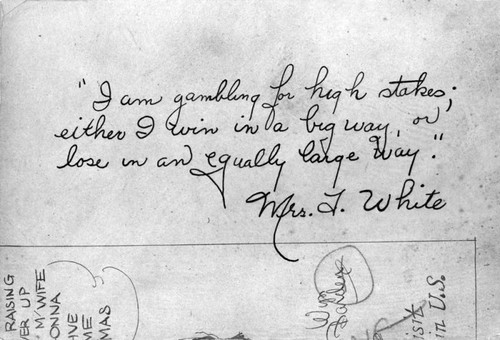 "I am gambling for high stakes;
either I win in a big way, or
lose in an equally large way."
Mrs. T. White
RAISING
VER UP
M/ WIFE
ONNA
HVE
ME
MAS
isit
in U.S.